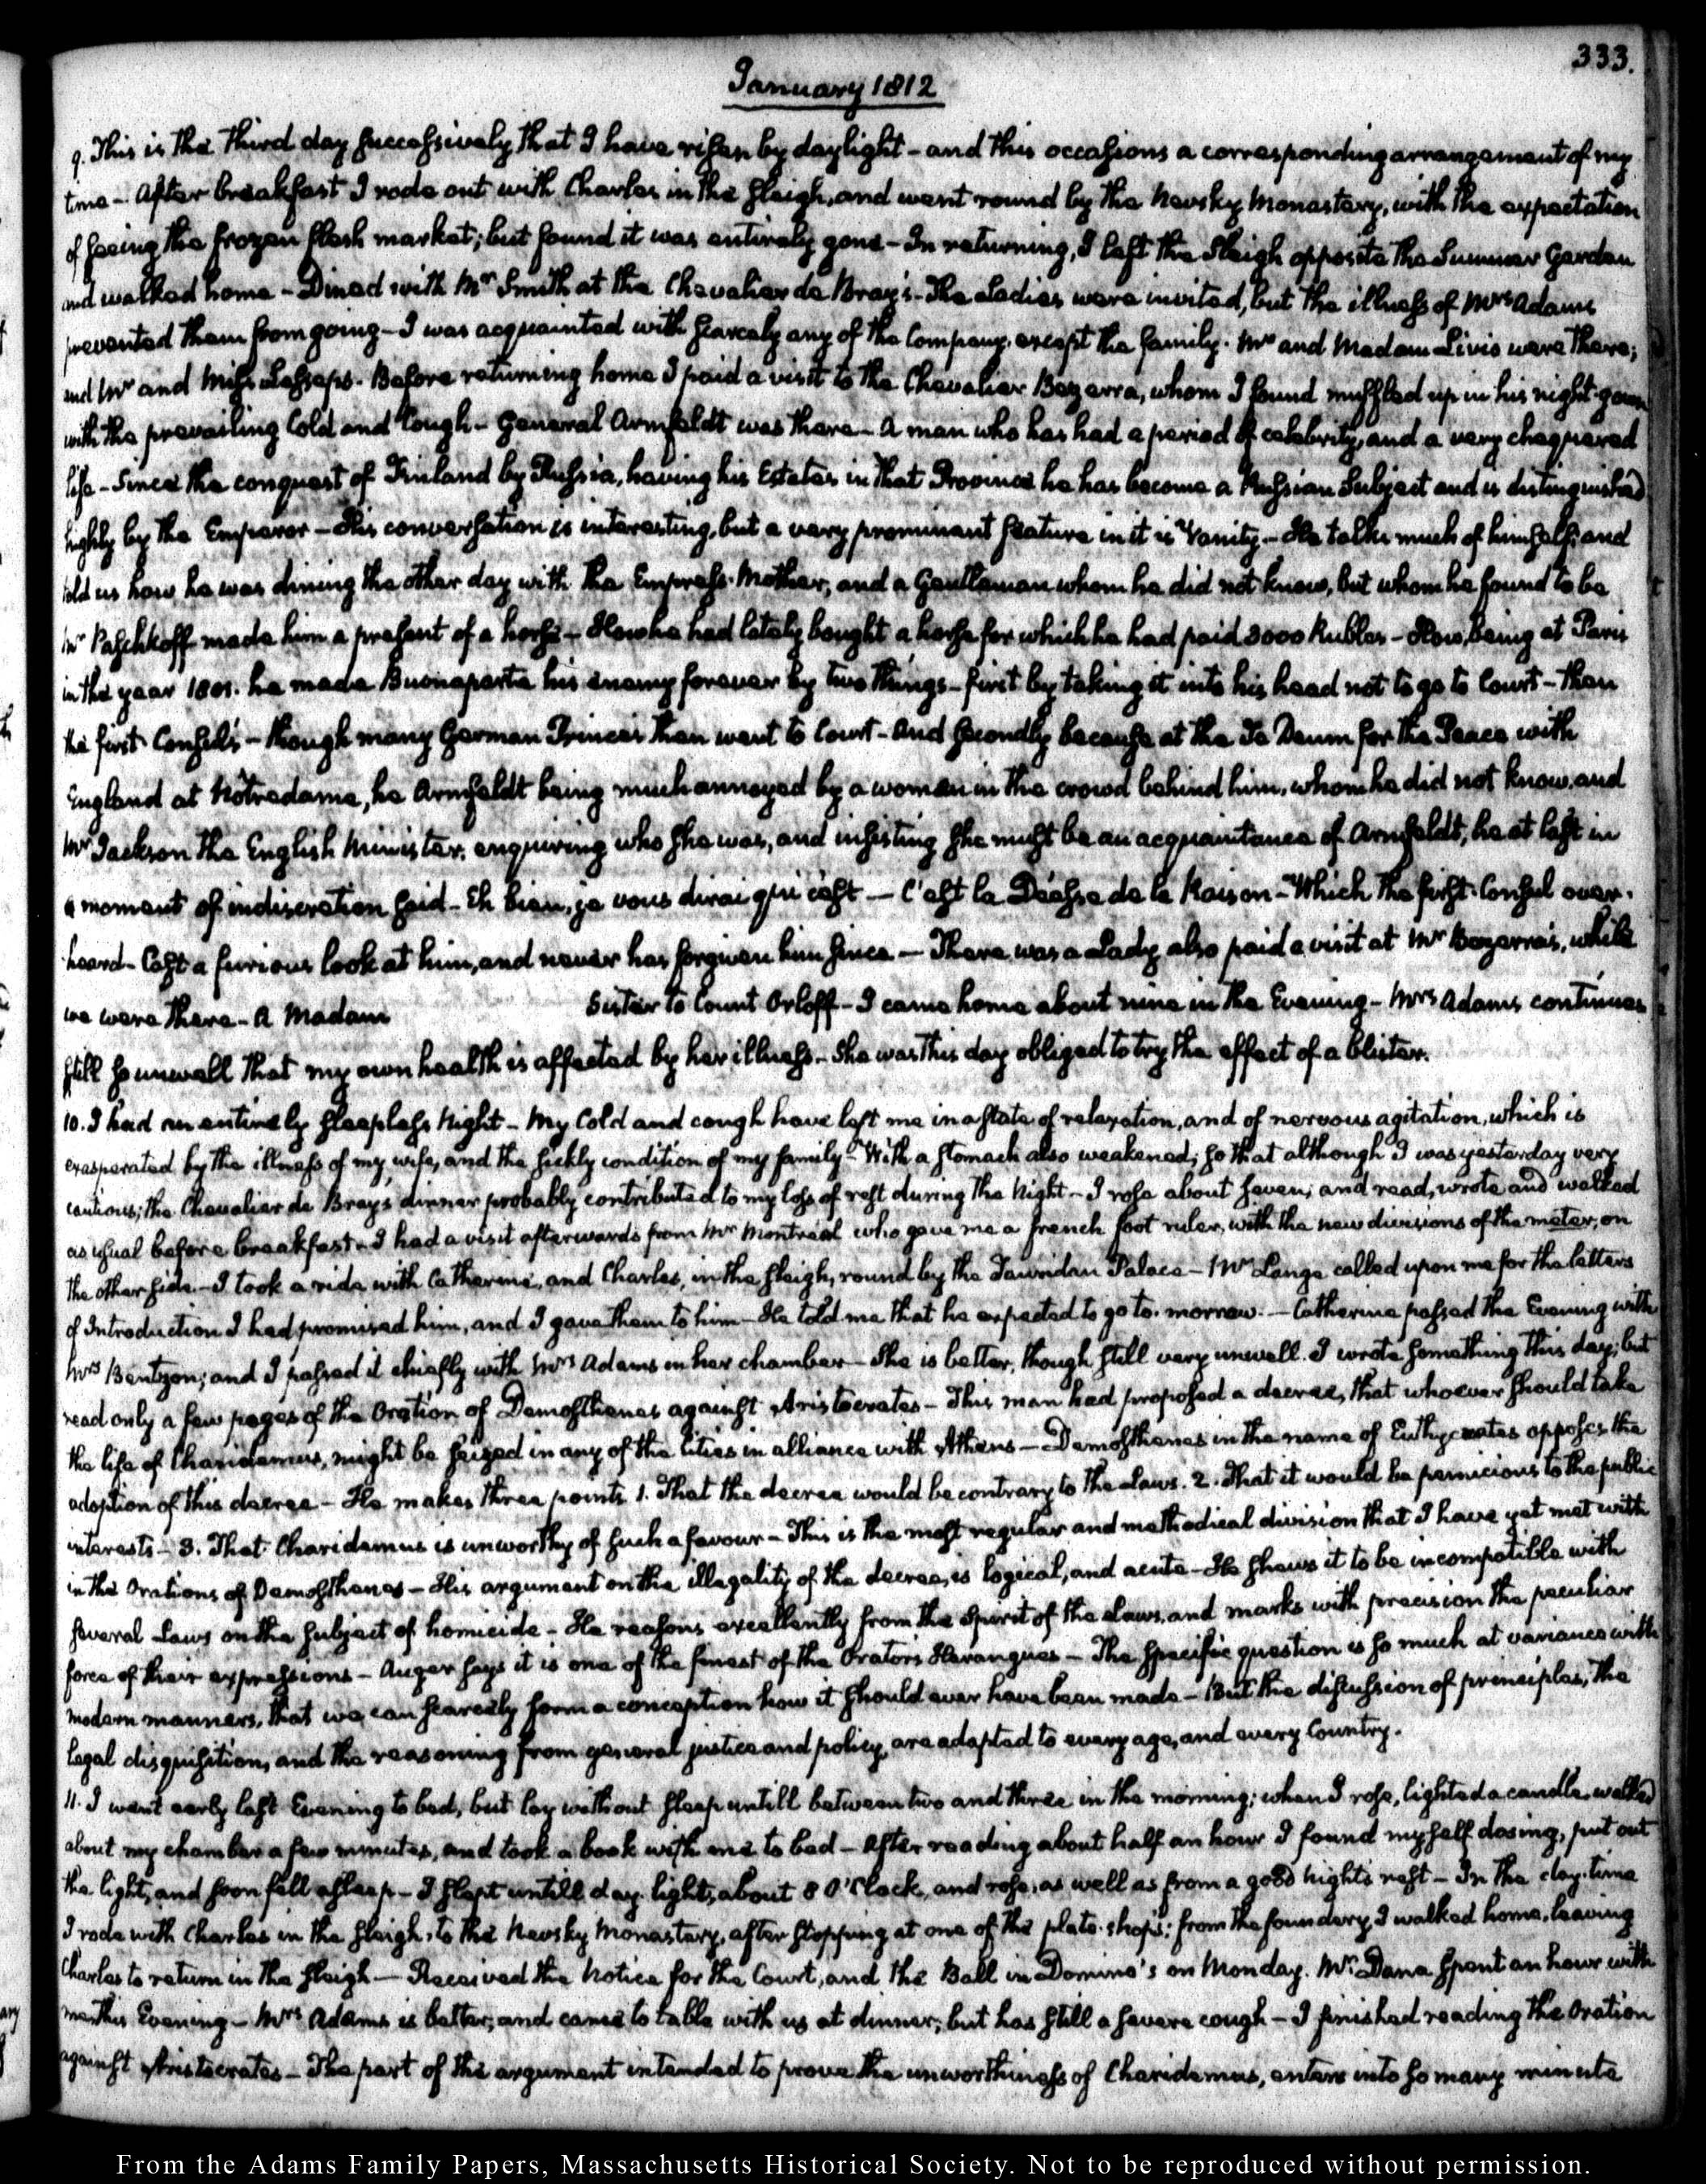 333.
January 1812
9. This is the third day successively that I have risen by daylight - and this occasions a corresponding arrangement of my
time - After breakfast I rode out with Charles in the sleigh, and went round by the Nevsky Monastery, with the expectation
of seeing the frozen flesh market; but found it was entirely gone - In returning, I left the Sleigh opposite the Summer Garden
and walked home - Dined with Mr Smith at the Chevalier de Bray's - The Ladies were invited, but the illness of Mrs Adams
prevented them from going - I was acquainted with scarcely any of the Company, except the family. Mr and Madam Livio were there;
and Mr and Miss Lesseps. Before returning home I paid a visit to the Chevalier Bezerra, whom I found muffled up in his night-gown
with the prevailing Cold and Cough - General Armfeldt was there - A man who has had a period of celebrity, and a very chequered
life - Since the conquest of Finland by Russia, having his Estates in that Province he has become a Russian Subject and is distinguished
highly by the Emperor - His conversation is interesting, but a very prominent feature in it is Vanity - He talks much of himself; and
told us how he was dining the other day with the Empress-Mother, and a Gentleman whom he did not know, but whom he found to be
Mr Paschkoff made him a present of a horse - How he had lately bought a horse for which he had paid 3000 Rubles - How, being at Paris
in the year 1801. he made Buonaparte his enemy forever by two things - first by taking it into his head not to go to Court - then
the first Consul's - though many German Princes then went to Court - And secondly because at the Te Deum for the Peace with
England at Nôtredame, he Armfeldt being much annoyed by a woman in the crowd behind him, whom he did not know, and
Mr Jackson the English Minister, enquiring who she was, and insisting she must be an acquaintance of Armfeldt, he at last in
a moment of indiscretion said - Eh bien, je vous dirai qui c'est — C'est la Déesse de la Raison - Which the first Consul over-
heard - Cast a furious look at him, and never has forgiven him since — There was a Lady also paid a visit at Mr Bezerra's, while
we were there - A Madam Sister to Count Orloff - I came home about nine in the Evening - Mrs Adams continues
still so unwell that my own health is affected by her illness - She was this day obliged to try the effect of a blister.
10. I had an entirely sleepless Night - My Cold and cough have left me in a state of relaxation, and of nervous agitation, which is
exasperated by the illness of my wife, and the sickly condition of my family - With a stomach also weakened; so that although I was yesterday very
cautious, the Chevalier de Bray's dinner probably contributed to my loss of rest during the Night - I rose about seven; and read, wrote and walked
as usual before breakfast - I had a visit afterwards from Mr Montréal who gave me a french foot ruler, with the new divisions of the meter, on
the other side - I took a ride with Catherine, and Charles, in the sleigh, round by the Tauridan Palace - Mr Lange called upon me for the letters
of Introduction I had promised him, and I gave them to him - He told me that he expected to go to-morrow. — Catherine passed the Evening with
Mrs Bentzon; and I passed it chiefly with Mrs Adams in her chamber - She is better, though still very unwell. I wrote something this day; but
read only a few pages of the Oration of Demosthenes against Aristocrates - This man had proposed a decree, that whoever should take
the life of Charidemus, might be seized in any of the Cities in alliance with Athens - Demosthenes in the name of Euthycrates opposes the
adoption of this decree - He makes three points 1. That the decree would be contrary to the Laws. 2. That it would be pernicious to the public
interests - 3. That Charidemus is unworthy of such a favour - This is the most regular and methodical division that I have yet met with
in the Orations of Demosthenes - His argument on the illegality of the decree, is logical, and acute - He shews it to be incompatible with
several Laws on the subject of homicide - He reasons excellently from the Spirit of the Laws, and marks with precision the peculiar
force of their expressions - Auger says it is one of the finest of the Orators Harangues - The specific question is so much at variance with
modern manners, that we can scarcely form a conception how it should ever have been made - But the discussion of principles, the
legal disquisition, and the reasoning from general justice and policy, are adapted to every age, and every Country.
11. I went early last Evening to bed, but lay without sleep untill between two and three in the morning; when I rose, lighted a candle, walked
about my chamber a few minutes, and took a book with me to bed - After reading about half an hour I found myself dosing, put out
the light, and soon fell asleep - I slept untill day-light, about 8 O'Clock, and rose, as well as from a good nights rest - In the day-time
I rode with Charles in the sleigh, to the Nevsky Monastery, after stopping at one of the plate-shops: from the foundery I walked home, leaving
Charles to return in the sleigh — Received the Notice for the Court, and the Ball in Domino's on Monday. Mr Dana spent an hour with
me this Evening - Mrs Adams is better, and came to table with us at dinner; but has still a severe cough - I finished reading the Oration
against Aristocrates - The part of the argument intended to prove the unworthiness of Charidemus, enters into so many minute
From the Adams Family Papers, Massachusetts Historical Society. Not to be reproduced without permission.